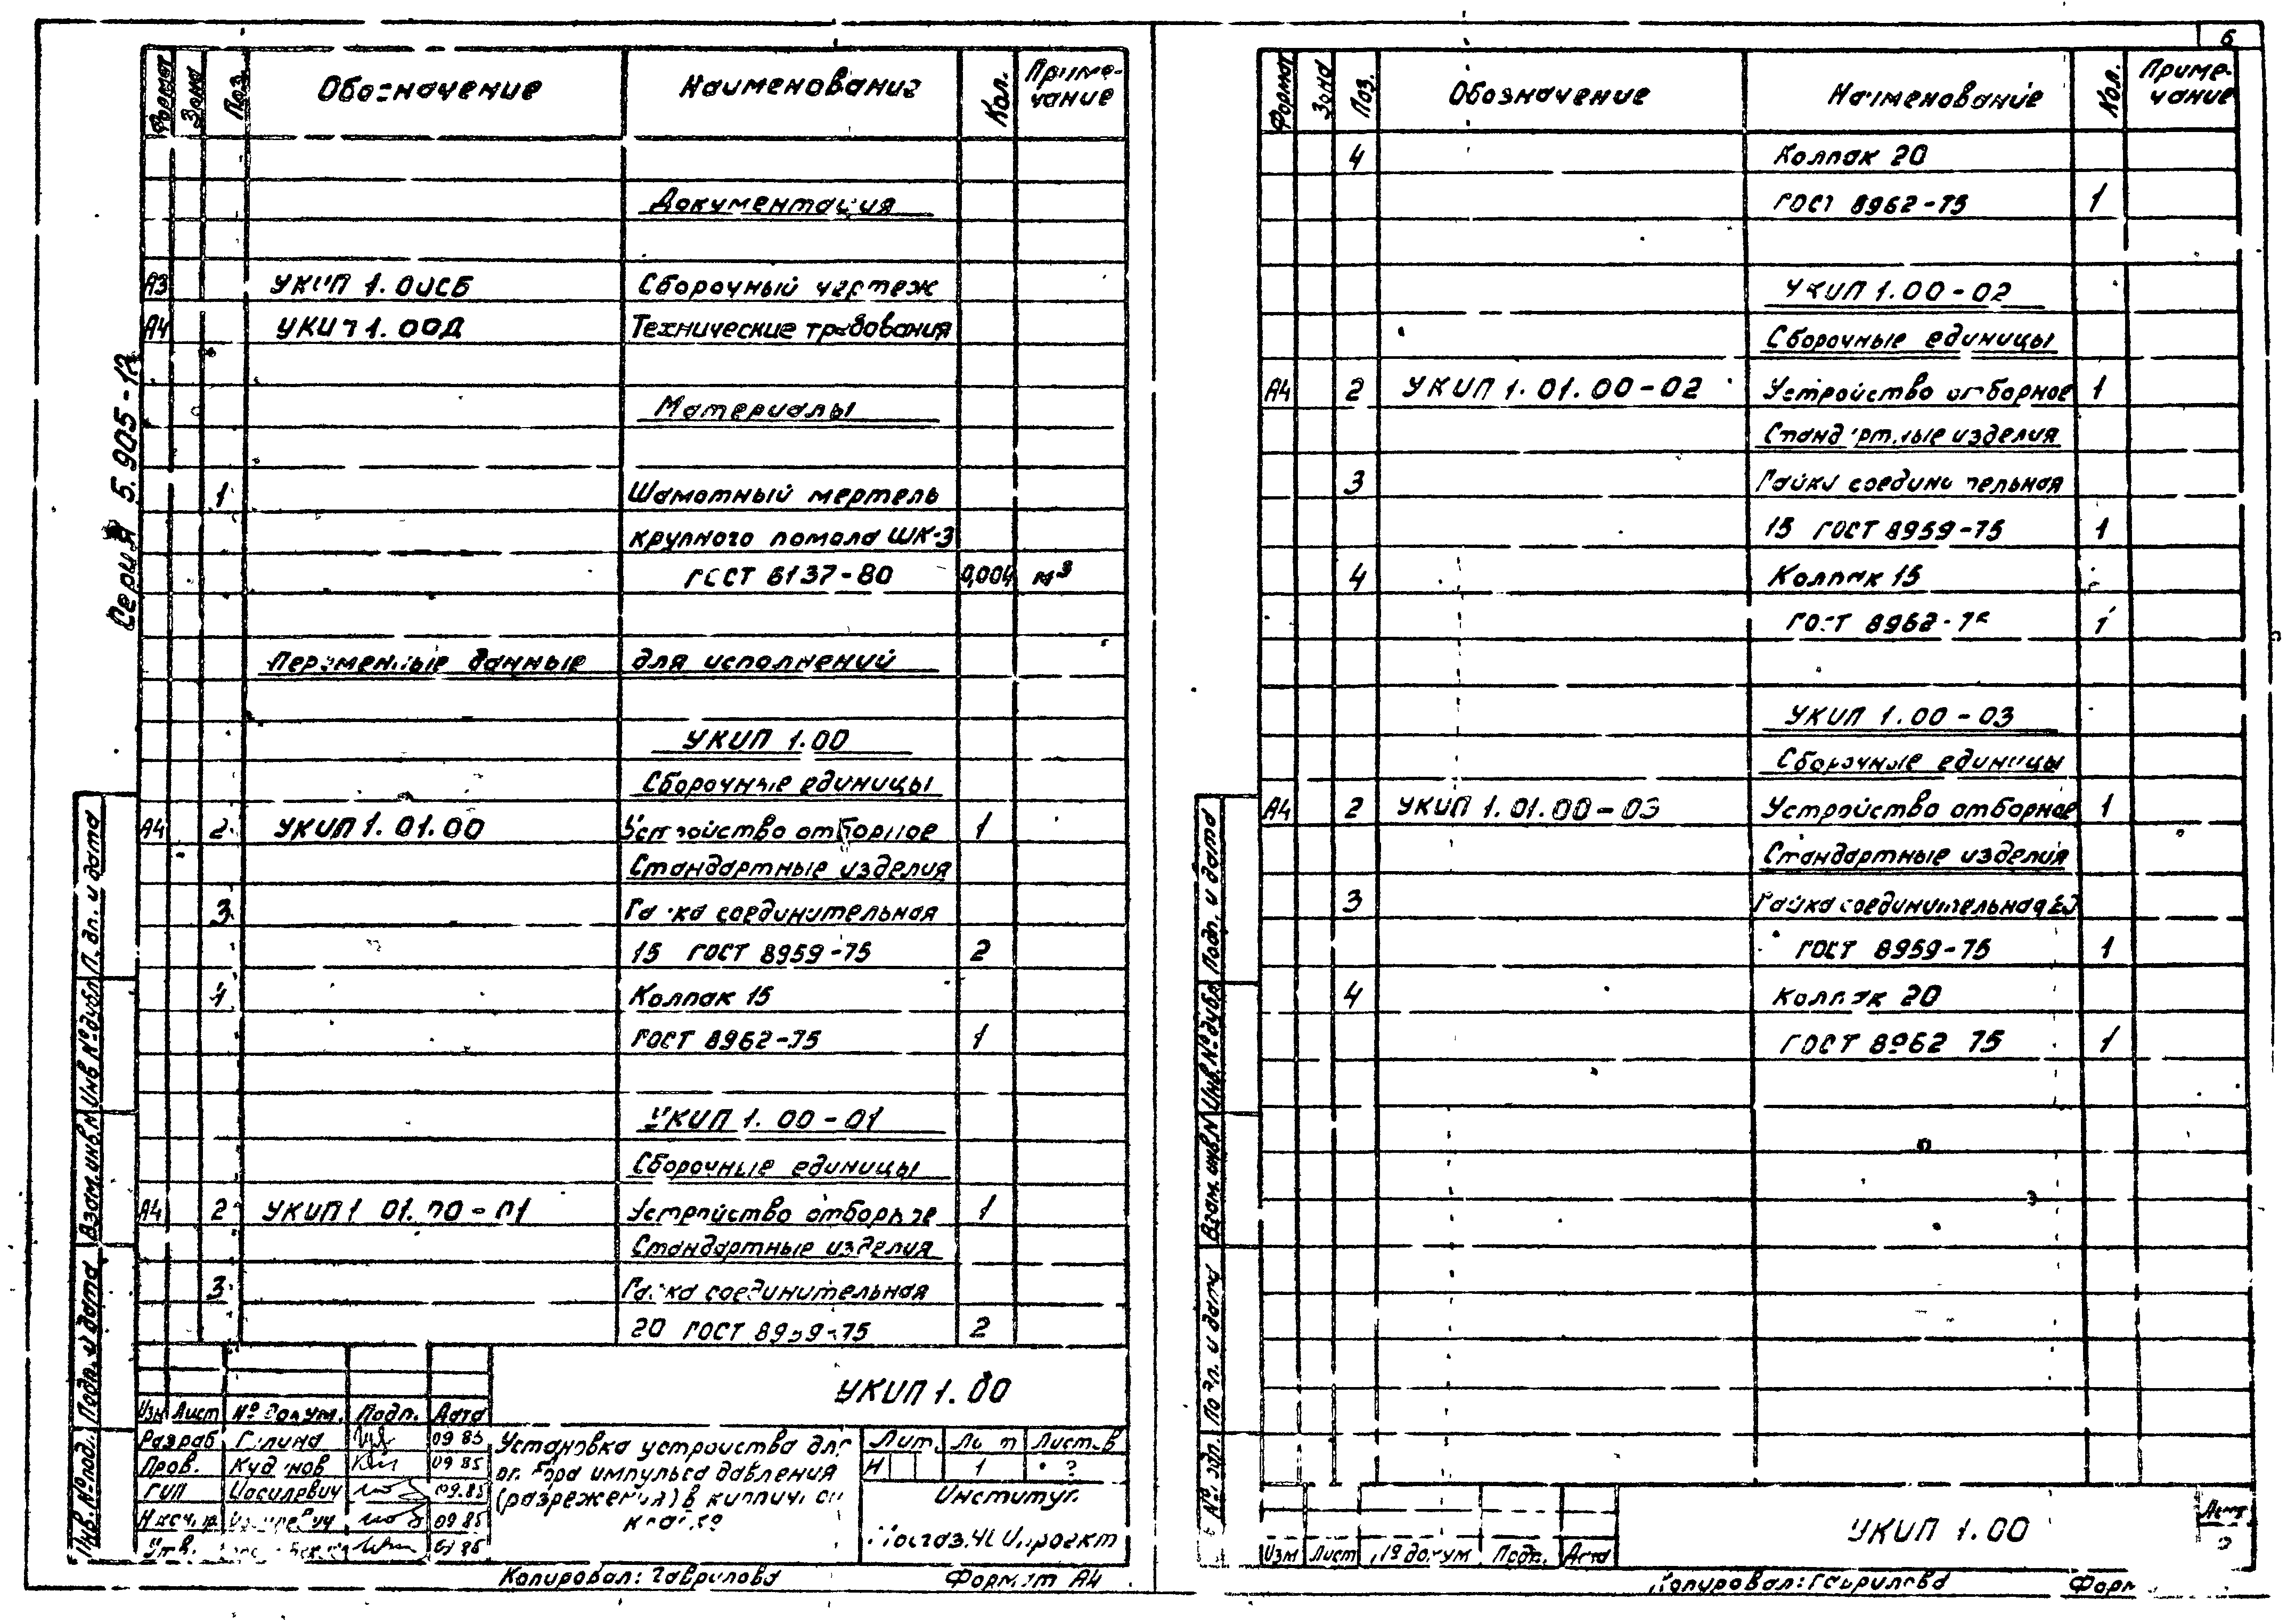 Серия 5.905-12
Формат Зона Поз. Обозначение Наименование Кол. Приме-
чание
Документация
А3 УКИП 1.00СБ Сборочный чертеж
А4 УКИП 1.00Д Технические требования
Материалы
1 Шамотный мертель
крупного помола ШК-3
ГОСТ 6137-80 0,004 м³
Переменные данные для исполнений
УКИП 1.00
Сборочные единицы
А4 2 УКИП 1.01.00 Устройство отборное 1
Стандартные изделия
3 Гайка соединительная
15 ГОСТ 8959-75 2
4 Колпак 15
ГОСТ 8962-75 1
УКИП 1.00-01
Сборочные единицы
А4 2 УКИП 1.01.00-01 Устройство отборное 1
Стандартные изделия
3 Гайка соединительная
20 ГОСТ 8959-75 2
УКИП 1.00
Изм Лист № докум. Подп. Дата
Разраб 09.85
Пров. 09.85
ГИП 09.85
09.85
Утв.
Установка устройства для
отбора импульса давления
(разрежения) в кирпичной
кладке
Лит. Лист Листов
И 1
Институт
Мосгазниипроект
Копировал: Гаврилова Формат А4
Инв. № подл. Подп. и дата Взам. инв. № Инв. № дубл. Подп. и дата
6
Формат Зона Поз. Обозначение Наименование Кол. Приме-
чание
4 Колпак 20
ГОСТ 8962-75 1
УКИП 1.00-02
Сборочные единицы
А4 2 УКИП 1.01.00-02 Устройство отборное 1
Стандартные изделия
3 Гайка соединительная
15 ГОСТ 8959-75 1
4 Колпак 15
ГОСТ 8962-75 1
УКИП 1.00-03
Сборочные единицы
А4 2 УКИП 1.01.00-03 Устройство отборное 1
Стандартные изделия
3 Гайка соединительная 20
ГОСТ 8959-75 1
4 Колпак 20
ГОСТ 8962-75 1
УКИП 1.00
Лист
Изм Лист № докум Подп. Дата
Копировал: Гаврилова
Подп. и дата Взам. инв. № Инв. № дубл. Подп. и дата